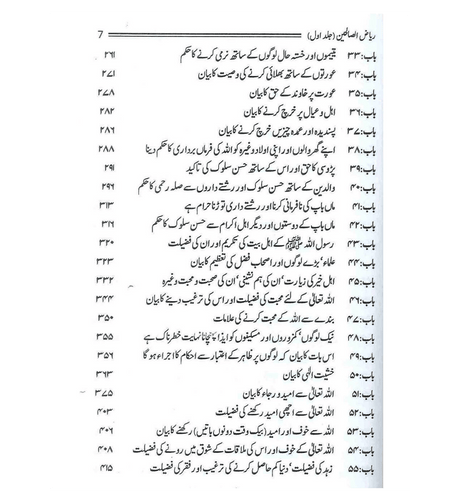 ریاض الصالحین (جلد اول) 7
باب: ۳۳ یتیموں اور خستہ حال لوگوں کے ساتھ نرمی کرنے کا حکم ۲۶۱
باب: ۳۴ عورتوں کے ساتھ بھلائی کرنے کی وصیت کا بیان ۲۷۱
باب: ۳۵ عورت پر خاوند کے حق کا بیان ۲۷۸
باب: ۳۶ اہل و عیال پر خرچ کرنے کا بیان ۲۸۲
باب: ۳۷ پسندیدہ اور عمدہ چیزیں خرچ کرنے کا بیان ۲۸۶
باب: ۳۸ اپنے گھر والوں اور اپنی اولاد وغیرہ کو اللہ کی فرماں برداری کا حکم دینا ۲۸۸
باب: ۳۹ پڑوسی کا حق اور اس کے ساتھ حسن سلوک کی تاکید ۲۹۱
باب: ۴۰ والدین کے ساتھ حسن سلوک اور رشتے داروں سے صلہ رحمی کا حکم ۲۹۶
باب: ۴۱ ماں باپ کی نافرمانی کرنا اور رشتے داری توڑنا حرام ہے ۳۱۳
باب: ۴۲ ماں باپ کے دوستوں اور دیگر اہل اکرام سے حسن سلوک کا حکم ۳۱۶
باب: ۴۳ رسول اللہ ﷺ کے اہل بیت کی تکریم اور ان کی فضیلت ۳۲۰
باب: ۴۴ علماء بڑے لوگوں اور اصحاب فضل کی تعظیم کا بیان ۳۲۳
باب: ۴۵ اہل خیر کی زیارت، ان کی ہم نشینی، ان کی صحبت و محبت وغیرہ ۳۳۲
باب: ۴۶ اللہ تعالیٰ کے لئے محبت کی فضیلت اور اس کی ترغیب دینے کا بیان ۳۴۴
باب: ۴۷ بندے سے اللہ کے محبت کرنے کی علامات ۳۵۰
باب: ۴۸ نیک لوگوں، کمزوروں اور مسکینوں کو ایذا پہنچانا نہایت خطرناک ہے ۳۵۵
باب: ۴۹ اس بات کا بیان کہ لوگوں پر ظاہر کے اعتبار سے احکام کا اجراء ہو گا ۳۵۶
باب: ۵۰ خشیت الٰہی کا بیان ۳۶۳
باب: ۵۱ اللہ تعالیٰ سے امید و رجاء کا بیان ۳۷۵
باب: ۵۲ اللہ تعالیٰ سے اچھی امید رکھنے کی فضیلت ۴۰۳
باب: ۵۳ اللہ سے خوف اور امید (بیک وقت دونوں باتیں) رکھنے کا بیان ۴۰۶
باب: ۵۴ اللہ تعالیٰ کے خوف اور اس کی ملاقات کے شوق میں رونے کی فضیلت ۴۰۸
باب: ۵۵ زہد کی فضیلت، دنیا کم حاصل کرنے کی ترغیب اور فقر کی فضیلت ۴۱۵